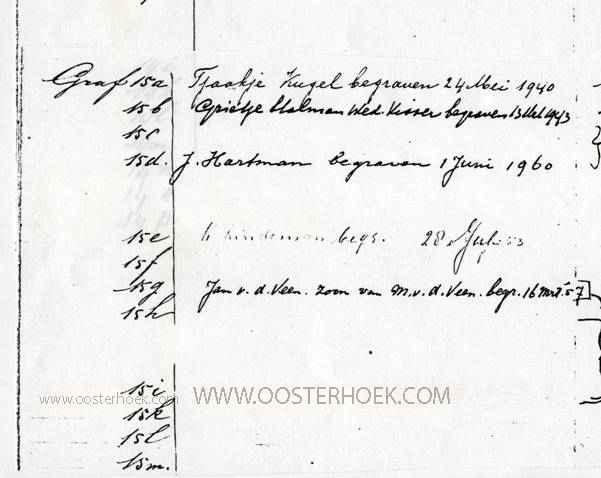 Graf 15a Tjaakje Kugel begraven 24 Mei 1940
15b Grietje Halman Wed. Visser begraven 13 Mrt 1943
15c
15d. J. Hartman begraven 1 Juni 1960
15e begr. 28 Juli 53
15f
15g Jan v. d. Veen. zoon van M. v. d. Veen. begr. 16 Mrt '57
15h
15i
www.oosterhoek.com WWW.OOSTERHOEK.COM
15k
15l
15m.